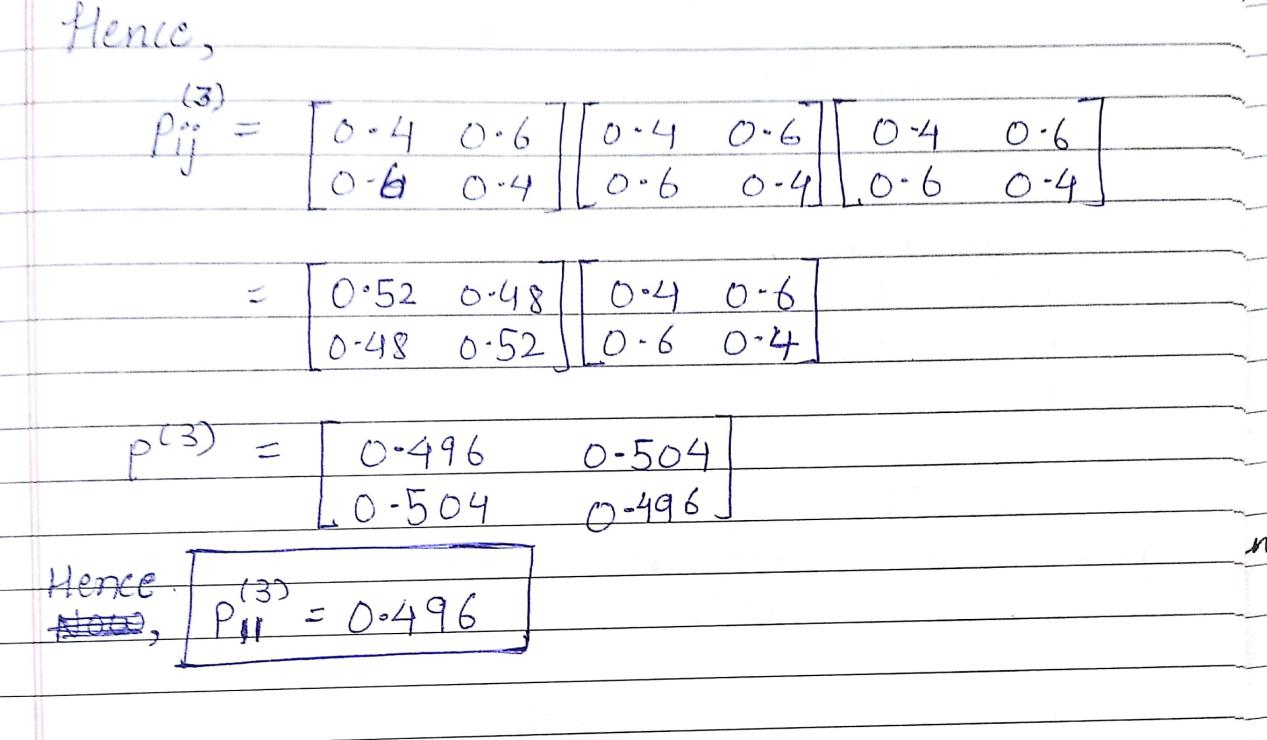 Hence,
Pij(3) = [0.4 0.6] [0.4 0.6] [0.4 0.6]
[0.6 0.4] [0.6 0.4] [0.6 0.4]
= [0.52 0.48] [0.4 0.6]
[0.48 0.52] [0.6 0.4]
P(3) = [0.496 0.504]
[0.504 0.496]
Hence
, P11(3) = 0.496